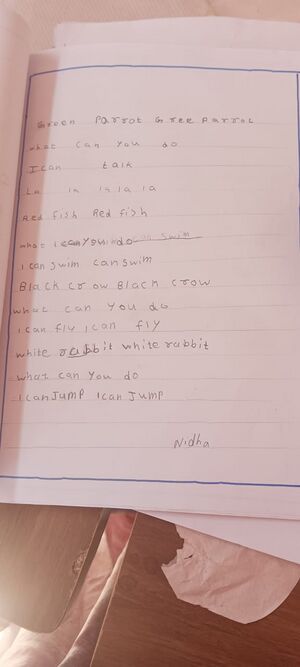 Green Parrot Gree Parrot
what can you do
I can talk
La la la la la
Red fish Red fish
what i can you do can swim
i can swim can swim
Black crow Black crow
what can you do
i can fly i can fly
white rabbit white rabbit
what can you do
i can Jump i can Jump
Nidha